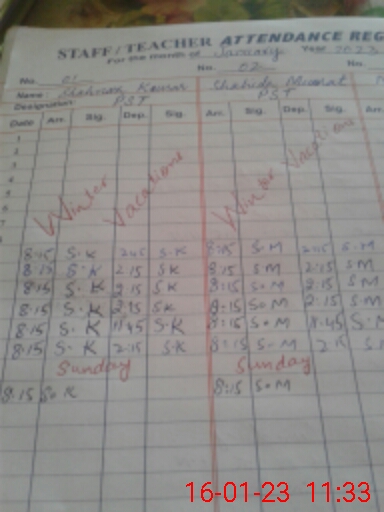 STAFF/TEACHER ATTENDANCE REG
For the month of January Year 2023
No. 01 No. 02 No.
Name Kousar Shahida Musrat
Designation PST PST
Date Arr. Sig. Dep. Sig. Arr. Sig. Dep. Sig.
1
2
3
4
5
6
7
Winter Vacations Winter Vacations
8:15 S.K 2:45 S.K 8:15 S.M 2:45 S.M
8:15 S.K 2:15 SK 8:15 S.M 2:15 S.M
8:15 S.K 2:15 S.K 8:15 S.M 2:15 S.M
8:15 S.K 2:15 SK 8:15 S.M 2:15 S.M
8:15 S.K S.K 8:15 S.M S.M
8:15 S.K 2:15 S.K 8:15 S.M 2:15
Sunday Sunday
8:15 S.K 8:15 S.M
16-01-23 11:33